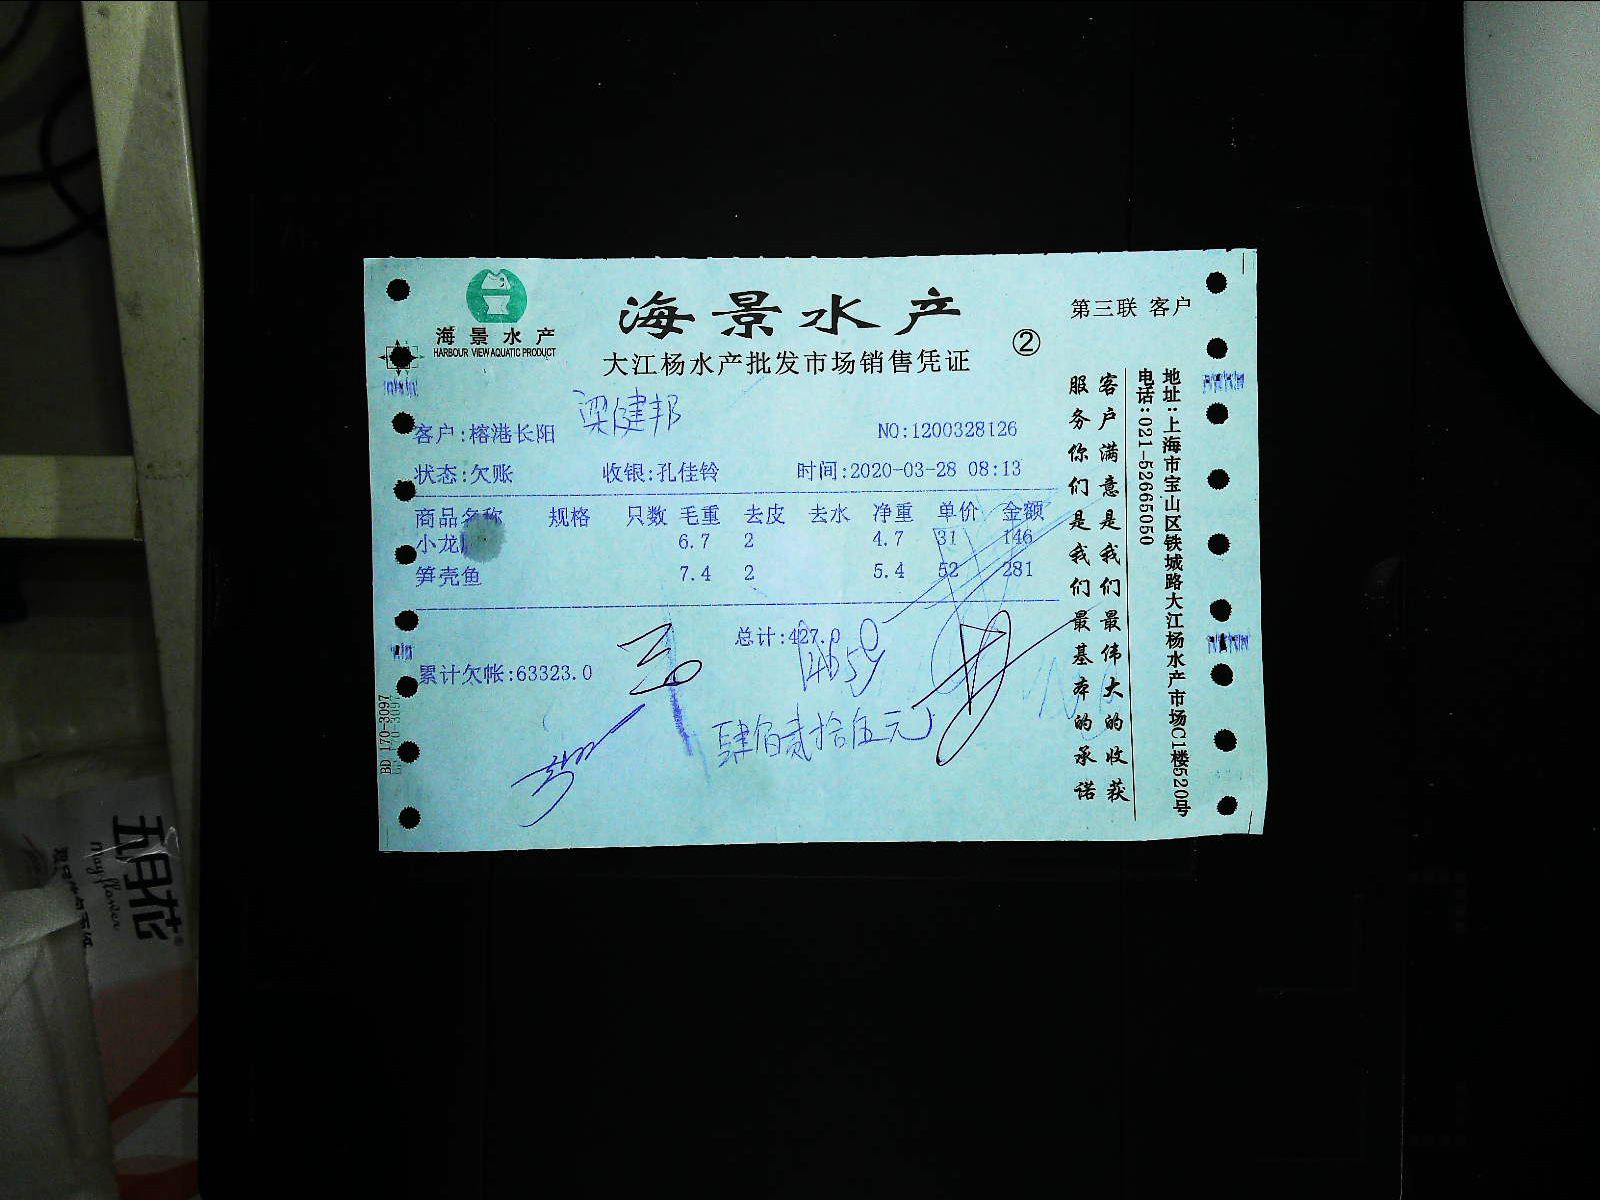 海景水产
HARBOUR VIEW AQUATIC PRODUCT
海景水产
大江杨水产批发市场销售凭证
②
第三联 客户
梁健邦
客户:榕港长阳
NO:1200328126
状态:欠账 收银:孔佳铃 时间:2020-03-28 08:13
商品名称 规格 只数 毛重 去皮 去水 净重 单价 金额
小龙 6.7 2 4.7 31 146
笋壳鱼 7.4 2 5.4 52 281
总计:427.0
累计欠帐:63323.0
肆佰贰拾伍元
客户满意是我们最伟大的收获
服务你们是我们最基本的承诺
地址:上海市宝山区铁城路大江杨水产市场C1楼520号
电话:021-52665050
BD 170-3097
五月花
May flower